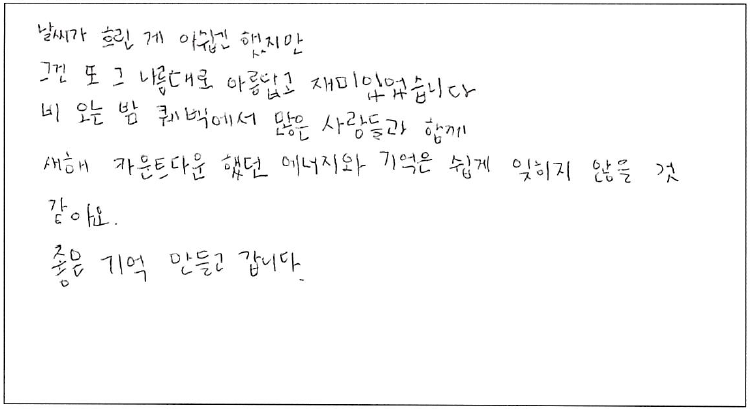 날씨가 흐린 게 아쉽긴 했지만
그건 또 그 나름대로 아름답고 재미있었습니다
비 오는 밤 퀘벡에서 많은 사람들과 함께
새해 카운트다운 했던 에너지와 기억은 쉽게 잊히지 않을 것
같아요.
좋은 기억 만들고 갑니다.